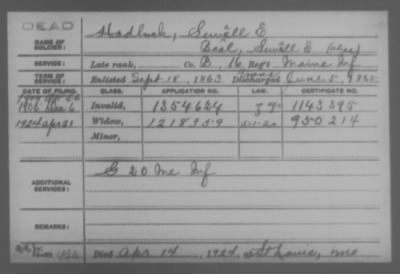 DEAD
NAME OF SOLDIER: Hadlock, Sewall E
Beal, Sewall E (alias)
SERVICE: Late rank, Co. B, 16 Reg't Maine Inf
TERM OF SERVICE: Enlisted Sept 18, 1863 Trans Discharged June 5, 1865
DATE OF FILING. CLASS. APPLICATION NO. LAW. CERTIFICATE NO.
1906 Dec 6 Invalid, 1354624 1143395
1924 Apr 21 Widow, 1218959 5-1-20 950214
Minor,
ADDITIONAL SERVICES: G 20 Me Inf
REMARKS:
Died Apr 14, 1924, at St Louis, Mo